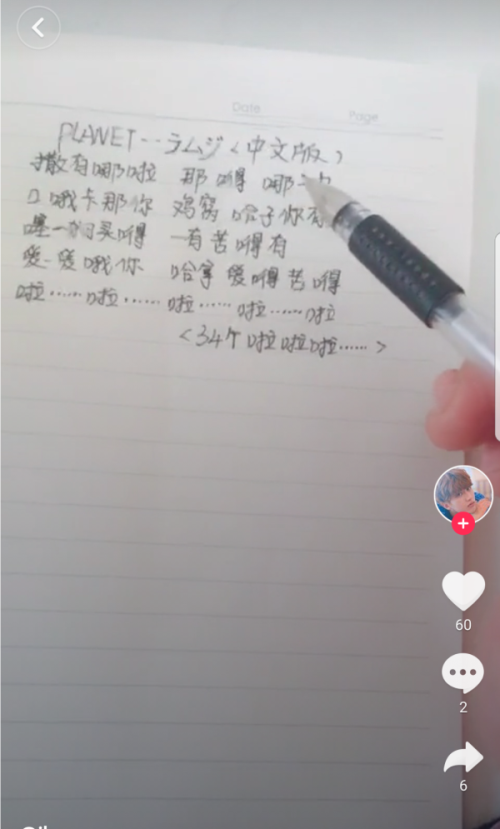 Date
Page
PLANET--ラムジ(中文版)
撒有哪啦 那嘚 哪
口哦卡那你 鸡窝哈子你有
一 嘚 一有苦嘚有
爱-爱哦你 哈字爱嘚苦嘚
啦……啦…… 啦……啦……啦
<34个啦啦啦……>
60
2
6